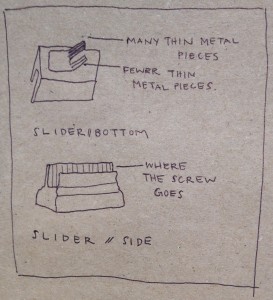 MANY THIN METAL
PIECES
FEWER THIN
METAL PIECES.
SLIDER//BOTTOM
WHERE
THE SCREW
GOES
SLIDER // SIDE